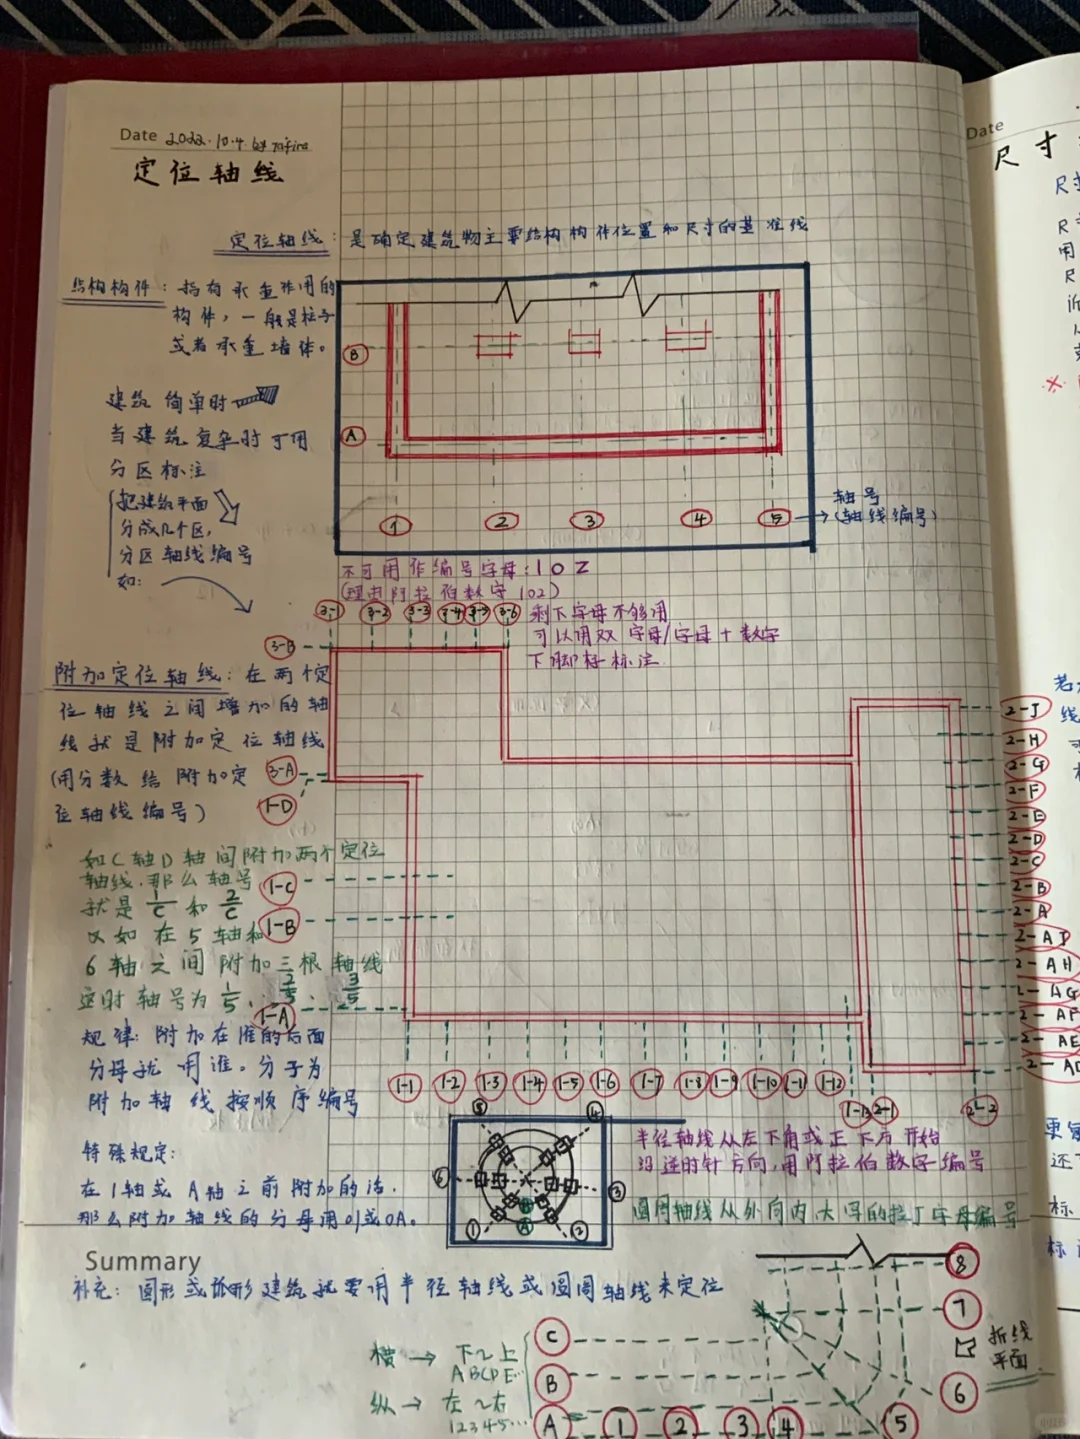 Date 2022.10.4.
定位轴线
定位轴线：是确定建筑物主要结构构件位置和尺寸的基准线
结构构件：指有承重作用的
构件，一般是柱子
或者承重墙体。
建筑简单时
当建筑复杂时可用
分区标注
把建筑平面
分成几个区，
分区轴线编号
如：
B
A
1 2 3 4 5
轴号
（轴线编号）
不可用作编号字母：I O Z
（理由阿拉伯数字102）
剩下字母不够用
可以用双字母/字母+数字
下脚标标注
3-1 3-2 3-3 3-4 3-5 3-6
3-B
3-A
1-D
1-C
1-B
1-A
附加定位轴线：在两个定
位轴线之间增加的轴
线就是附加定位轴线
（用分数给附加定
位轴线编号）
如C轴D轴间附加两个定位
轴线，那么轴号
就是 1/C 和 2/C
又如在5轴和
6轴之间附加三根轴线
这时轴号为 1/5、2/5、3/5
规律：附加在谁的后面
分母就用谁。分子为
附加轴线按顺序编号
特殊规定：
在1轴或A轴之前附加的话，
那么附加轴线的分母用01或0A。
2-J
2-H
2-G
2-F
2-E
2-D
2-C
2-B
2-A
2-AD
2-AH
2-AG
2-AF
2-AE
2-AD
1-1 1-2 1-3 1-4 1-5 1-6 1-7 1-8 1-9 1-10 1-11 1-12
1-13 2-1 2-2
5 4
6 3
1 2
A
半径轴线从左下角或正下方开始
沿逆时针方向，用阿拉伯数字编号
圆周轴线从外向内大写的拉丁字母编号
Summary
补充：圆形或弧形建筑就要用半径轴线或圆周轴线来定位
横→ 下~上
ABCDE…
纵→ 左~右
12345…
C
B
A 1 2 3 4 5
8
7
6
折线
平面
Date
尺寸